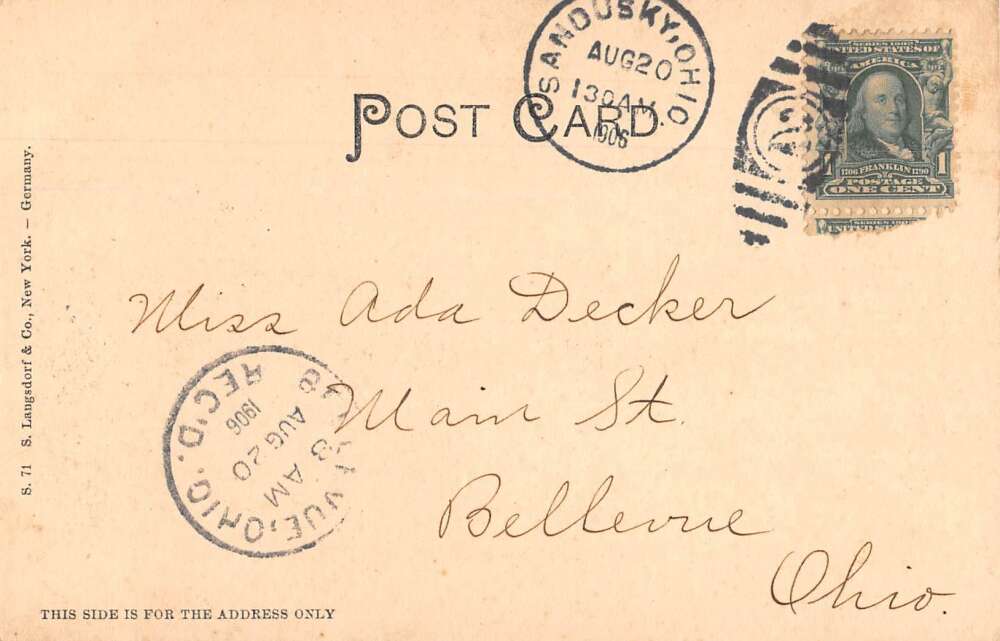 POST CARD
SANDUSKY, OHIO
AUG 20
130 AM
1906
2
SERIES 1902
UNITED STATES OF
AMERICA
1706 FRANKLIN 1790
1 1
POSTAGE
ONE CENT
SERIES 1902
UNITED STATES OF
S. 71 S. Langsdorf & Co., New York. — Germany.
Miss Ada Decker
Main St.
Bellevue
Ohio.
BELLEVUE, OHIO
REC'D.
8 AM
AUG 20
1906
THIS SIDE IS FOR THE ADDRESS ONLY